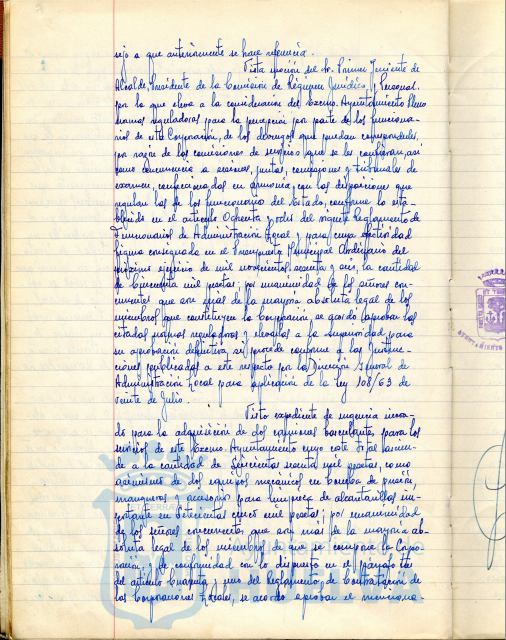 sejo a que anteriormente se hace referencia.
Vista moción del Sr. Primer Teniente de
Alcalde, Presidente de la Comisión de Régimen Jurídico y Personal,
por la que eleva a la consideración del Excmo. Ayuntamiento Pleno
normas reguladoras para la percepción por parte de los funciona-
rios de esta Corporación, de los devengos que puedan corresponderles
por razón de las comisiones de servicio que se les confieran, así
como concurrencia a sesiones, juntas, consejos y tribunales de
examen, confeccionadas en armonía, con las disposiciones que
regulan las de los funcionarios del Estado, conforme lo esta-
blecido en el artículo Ochenta y dos del vigente Reglamento de
Funcionarios de Administración Local y para cuya efectividad
figura consignada en el Presupuesto Municipal Ordinario del
próximo ejercicio de mil novecientos sesenta y seis, la cantidad
de Cincuenta mil pesetas; por unanimidad de los señores con-
currentes que son más de la mayoría absoluta legal de los
miembros que constituyen la Corporación, se acordó aprobar las
citadas normas reguladoras y elevarlas a la Superioridad para
su aprobación definitiva, si procede conforme a las Instruc-
ciones publicadas a este respecto por la Dirección General de
Administración Local para aplicación de la Ley 108/63 de
veinte de Julio.
Visto expediente de urgencia incoa-
do para la adquisición de dos camiones basculantes, para los
servicios de este Excmo. Ayuntamiento cuyo coste total asciende
a la cantidad de Seiscientas sesenta mil pesetas, como
asimismo de dos equipos mecánicos en de presión,
mangueras y accesorios para limpieza de alcantarillas im-
portante en Setecientas cinco mil pesetas; por unanimidad
de los señores concurrentes que son más de la mayoría ab-
soluta legal de los miembros de que se compone la Corpo-
ración, y de conformidad con lo dispuesto en el párrafo
del artículo Cuarenta y uno del Reglamento de Contratación de
las Corporaciones Locales, se acordó aprobar el menciona-
AYUNTAMIENTO